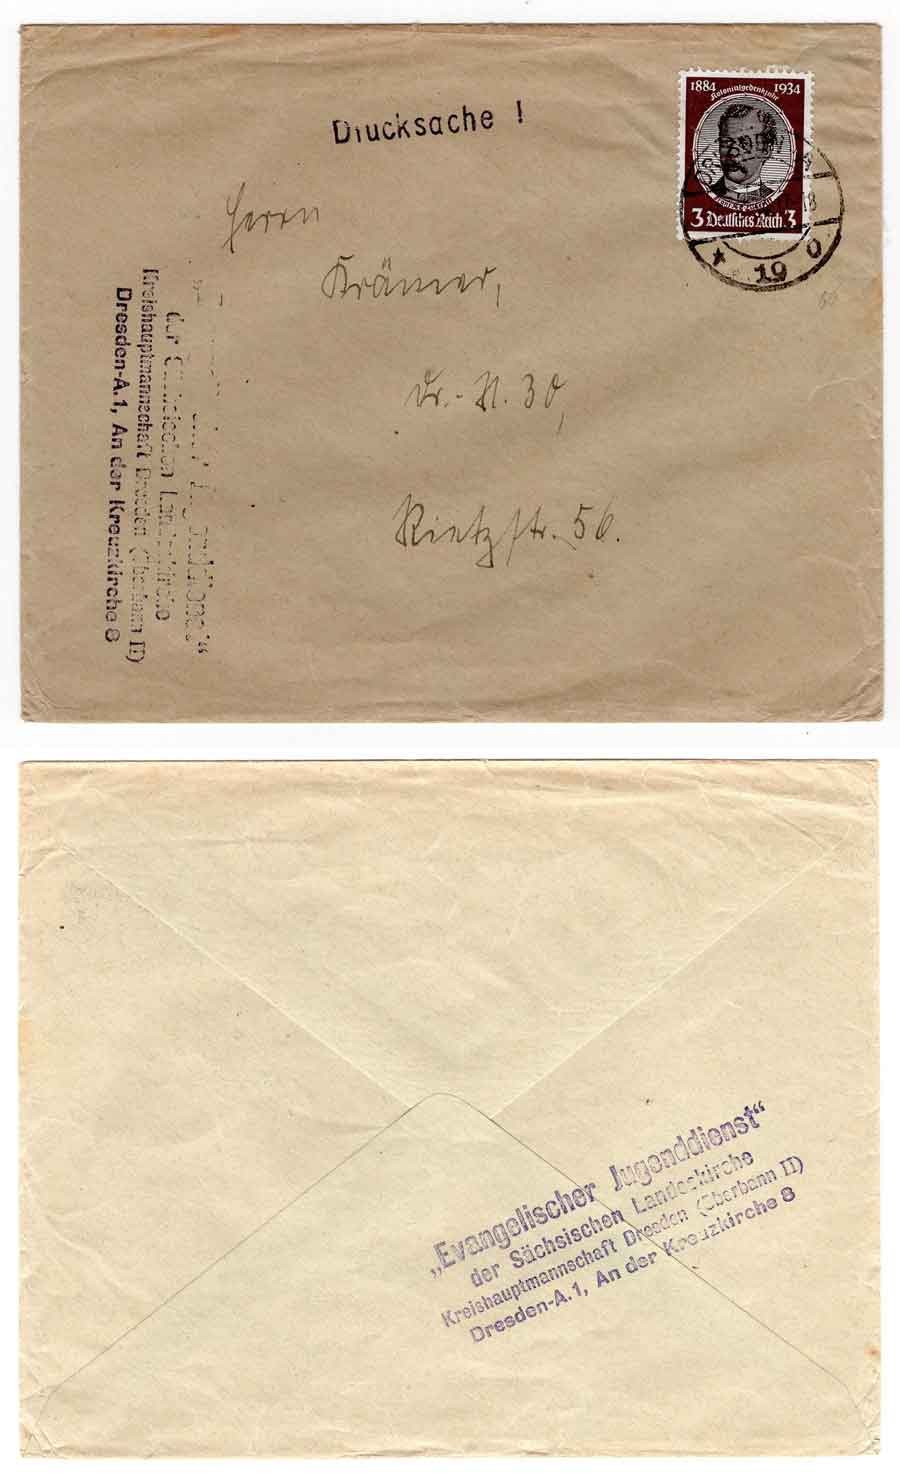 Drucksache !
1884 1934
Kolonialgedenkjahr
3 Deutsches Reich 3
DRESDEN A
19
Herrn
Krämer,
Dr.-N. 30,
Rietzstr. 56.
der Sächsischen Landeskirche
Kreishauptmannschaft Dresden (Oberbann II)
Dresden-A.1, An der Kreuzkirche 8
„Evangelischer Jugenddienst“
der Sächsischen Landeskirche
Kreishauptmannschaft Dresden (Oberbann II)
Dresden-A.1, An der Kreuzkirche 8